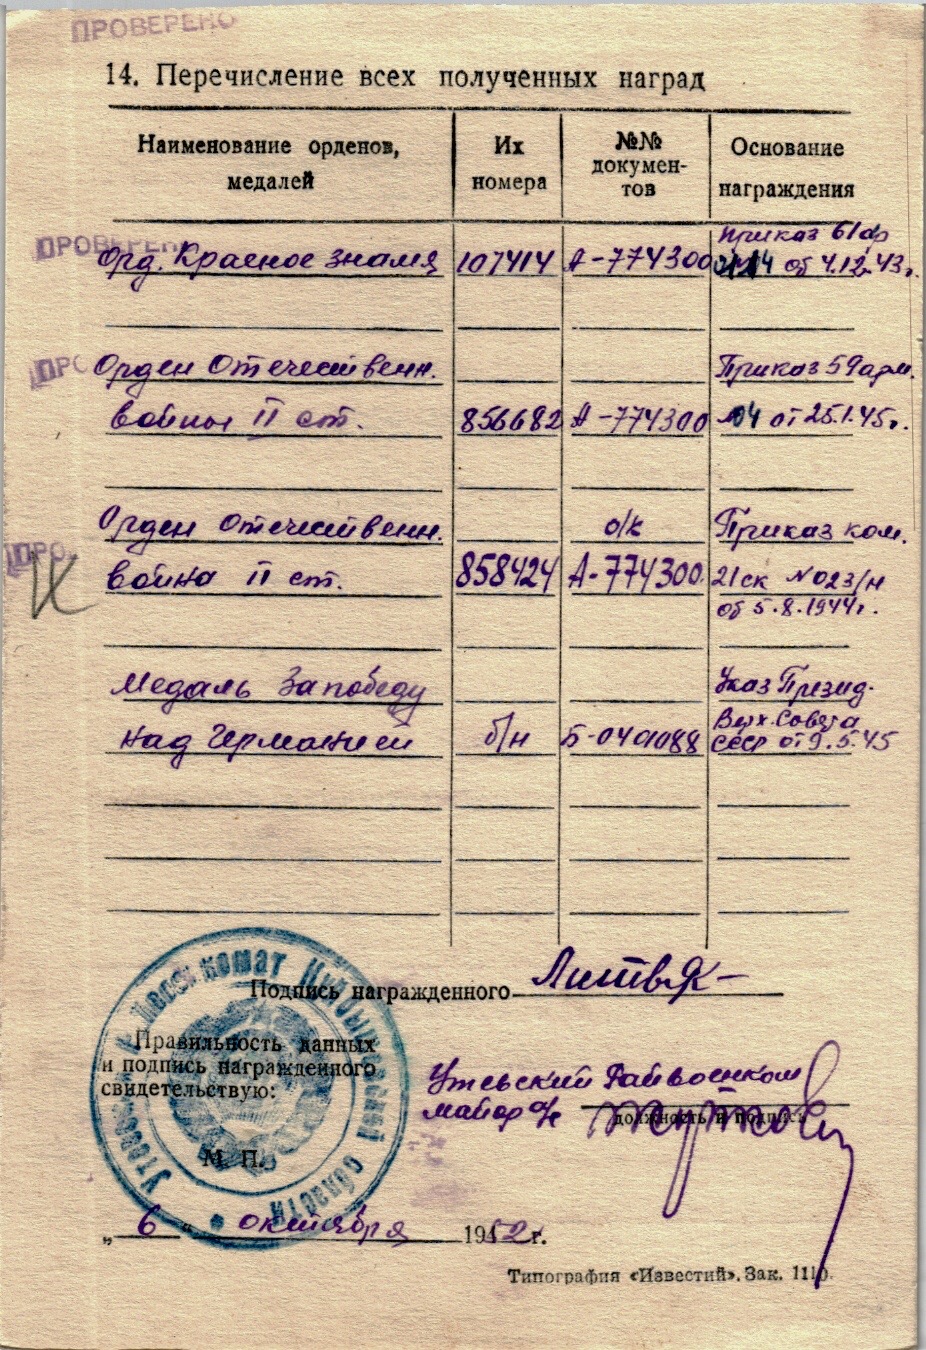 ПРОВЕРЕНО
14. Перечисление всех полученных наград
Наименование орденов, медалей
Их номера
№№ документов
Основание награждения
ПРОВЕРЕН
Орд. Красное знамя 107414 А-774300 Приказ 61
об 4.12.43г.
ПРО
Орден Отечественн. Приказ 59арм.
войны II ст. 856682 А-774300 №04 от 25.1.45г.
Орден Отечественн. Приказ ком.
ПРО
война II ст. 858424 А-774300. 21ск №023/н
об 5.8.1944г.
Медаль За победу Указ Презид.
над Германией б/н Б-0401088 Верх. Совета
СССР от 9.5.45
Подпись награжденного Литвяк
Правильность данных
и подпись награжденного
свидетельствую:
Утевский Райвоенком
майор а/с
должность и подпись
М. П.
области
„6“ октября 1952г.
Типография «Известий». Зак. 1110.